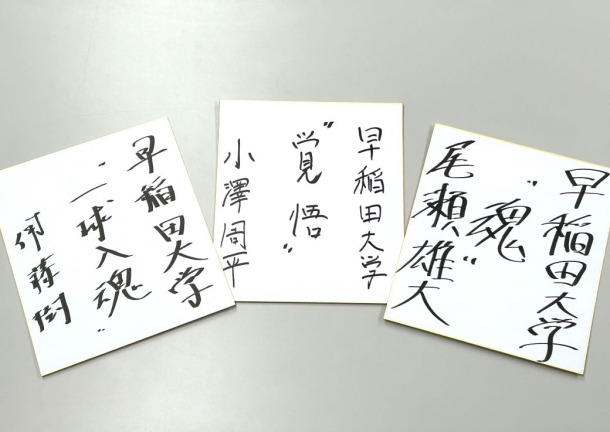 早稲田大学
"一球入魂"
伊藤樹
早稲田大学
"覚悟"
小澤周平
早稲田大学
"魂"
尾瀬雄大